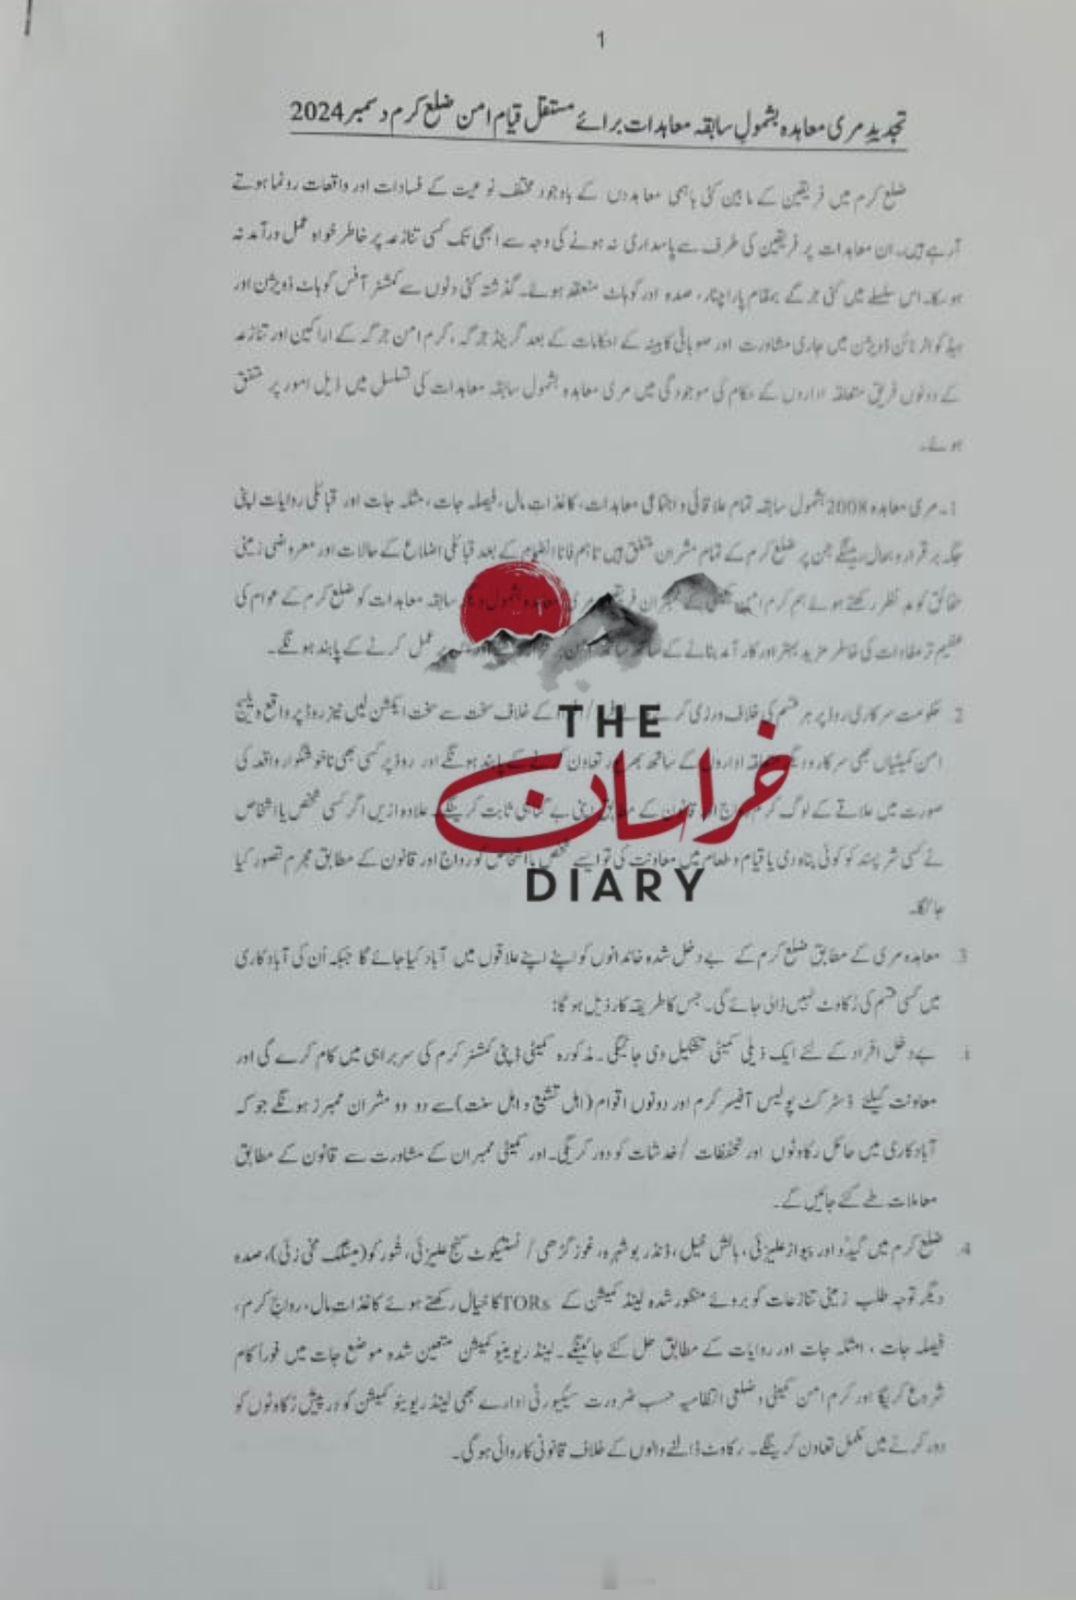 1
تجدیدِ مری معاہدہ بشمول سابقہ معاہدات برائے مستقل قیام امن ضلع کرم دسمبر 2024
ضلع کرم میں فریقین کے مابین کئی باہمی معاہدوں کے باوجود مختلف نوعیت کے فسادات اور واقعات رونما ہوتے
آرہے ہیں۔ ان معاہدات پر فریقین کی طرف سے پاسداری نہ ہونے کی وجہ سے ابھی تک کسی تنازعہ پر خاطر خواہ عمل درآمد نہ
ہوسکا۔ اس سلسلے میں کئی جرگے بمقام پاراچنار، صدہ اور کوہاٹ منعقد ہوئے۔ گذشتہ کئی دنوں سے کمشنر آفس کوہاٹ ڈویژن اور
ہیڈ کوارٹر نائن ڈویژن میں جاری مشاورت اور صوبائی کابینہ کے احکامات کے بعد گرینڈ جرگہ، کرم امن جرگہ کے اراکین اور تنازعہ
کے دونوں فریق متعلقہ اداروں کے حکام کی موجودگی میں مری معاہدہ بشمول سابقہ معاہدات کی تسلسل میں ذیل امور پر متفق
ہوئے۔
1۔ مری معاہدہ 2008 بشمول سابقہ تمام علاقائی و اجتماعی معاہدات، کاغذات مال، فیصلہ جات، مثلہ جات اور قبائلی روایات اپنی
جگہ برقرار و بحال رہینگے جن پر ضلع کرم کے تمام مشران متفق ہیں تاہم فاٹا انضمام کے بعد قبائلی اضلاع کے حالات اور معروضی زمینی
حقائق کو مد نظر رکھتے ہوئے ہم کرم امن کمیٹی کے ممبران فریقین مری معاہدہ بشمول سابقہ معاہدات کو ضلع کرم کے عوام کی
عظیم تر مفادات کی خاطر مزید بہتر اور کارآمد بنانے کے ساتھ ساتھ عمل کرنے کے پابند ہونگے۔
2 حکومت سرکاری روڈ پر ہر قسم کی خلاف ورزی کے خلاف سخت سے سخت ایکشن لیں نیز روڈ پر واقع ویلیج
امن کمیٹیاں بھی سرکار و دیگر متعلقہ اداروں کے ساتھ بھرپور تعاون کرنے کے پابند ہونگے اور روڈ پر کسی بھی ناخوشگوار واقعہ کی
صورت میں علاقے کے لوگ کرم رواج اور قانون کے مطابق اپنی بے گناہی ثابت کرینگے۔ علاوہ ازیں اگر کسی شخص یا اشخاص
نے کسی شرپسند کو کوئی پناہ دی یا قیام و طعام میں معاونت کی تو ایسے شخص یا اشخاص کو رواج اور قانون کے مطابق مجرم تصور کیا
جائیگا۔
3 معاہدہ مری کے مطابق ضلع کرم کے بے دخل شدہ خاندانوں کو اپنے اپنے علاقوں میں آباد کیا جائے گا جبکہ اُن کی آبادکاری
میں کسی قسم کی رُکاوٹ نہیں ڈالی جائے گی۔ جس کا طریقہ کار ذیل ہوگا:
i. بے دخل افراد کے لئے ایک ذیلی کمیٹی تشکیل دی جائیگی۔ مذکورہ کمیٹی ڈپٹی کمشنر کرم کی سربراہی میں کام کرے گی اور
معاونت کیلئے ڈسٹرکٹ پولیس آفیسر کرم اور دونوں اقوام (اہل تشیع و اہل سنت) سے دو دو مشران ممبرز ہونگے جو کہ
آبادکاری میں حائل رکاوٹوں اور تحفظات /خدشات کو دور کریگی۔ اور کمیٹی ممبران کے مشاورت سے قانون کے مطابق
معاملات طے کئے جائیں گے۔
4. ضلع کرم میں گیدو اور پیواڑ علیزئی، بالش خیل، ڈنڈر بوشہرہ، غوز گڑھی / نستیکوٹ کنج علیزئی، شورکو، صدہ
دیگر توجہ طلب زمینی تنازعات کو بروئے منظور شدہ لینڈ کمیشن کے TORs کا خیال رکھتے ہوئے کاغذات مال، رواج کرم،
فیصلہ جات، امثلہ جات اور روایات کے مطابق حل کئے جائینگے۔ لینڈ ریوینیو کمیشن متعین شدہ موضع جات میں فوراً کام
شروع کریگا اور کرم امن کمیٹی و ضلعی انتظامیہ حسب ضرورت سیکیورٹی ادارے بھی لینڈ ریوینو کمیشن کو درپیش رُکاوٹوں کو
دور کرنے میں مکمل تعاون کرینگے۔ رکاوٹ ڈالنے والوں کے خلاف قانونی کاروائی ہوگی۔
THE
خراسان
DIARY